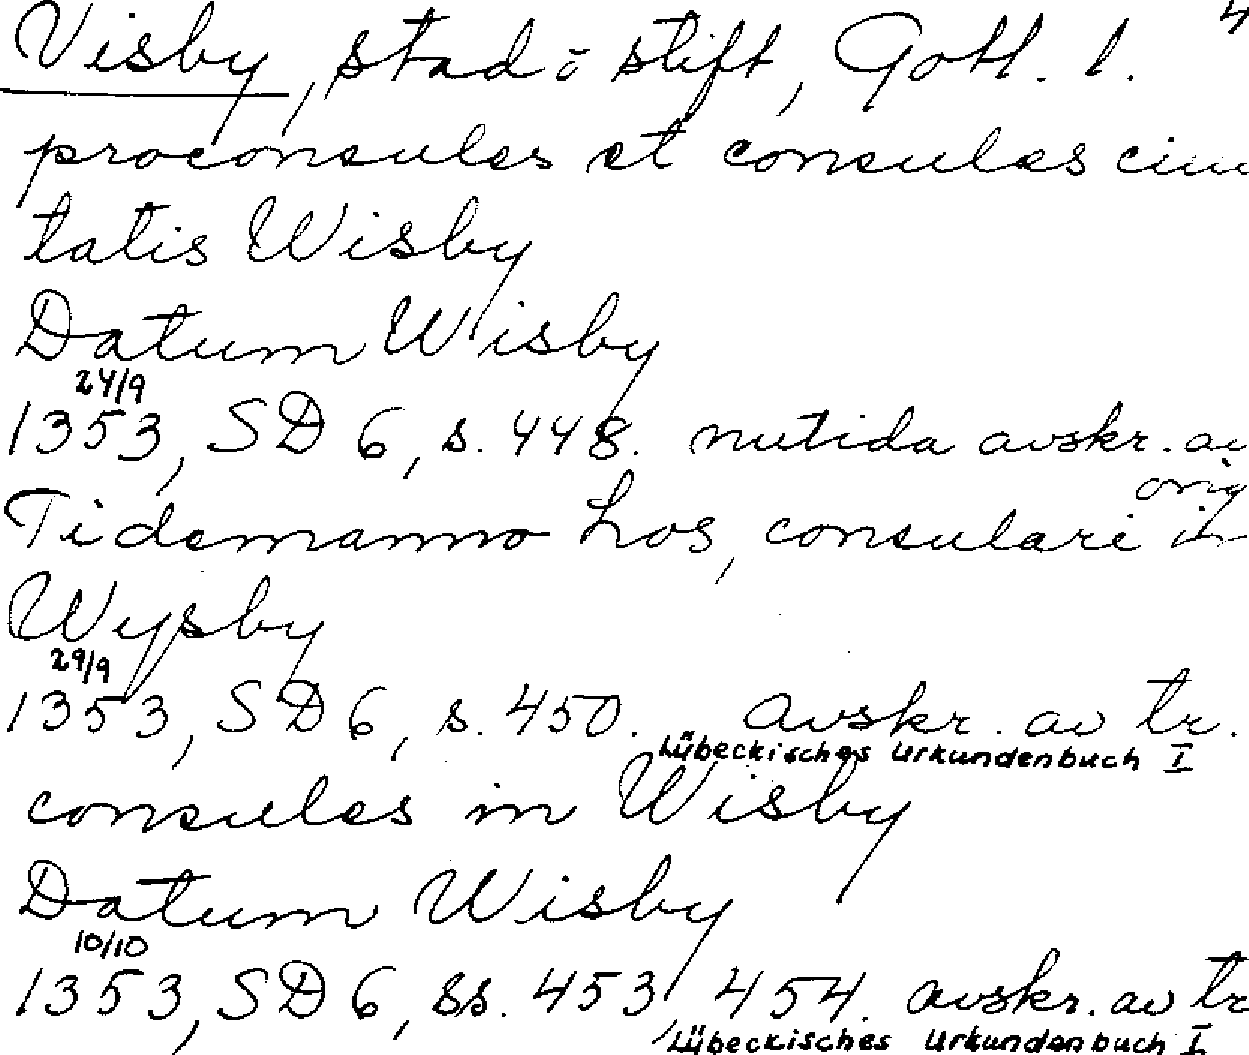 Visby, stad o stift, Gotl. l. 4
proconsules et consules ciui
tatis Wisby
Datum Wisby
24/9
1353, SD 6, s. 448. nutida avskr. av
orig
Tidemanno hos, consulari in
Wysby
29/9
1353, SD 6, s. 450. avskr. av tr.
Lübeckisches Urkundenbuch I
consules in Wisby
Datum Wisby
10/10
1353, SD 6, ss. 453, 454. avskr. av tr
Lübeckisches Urkundenbuch I